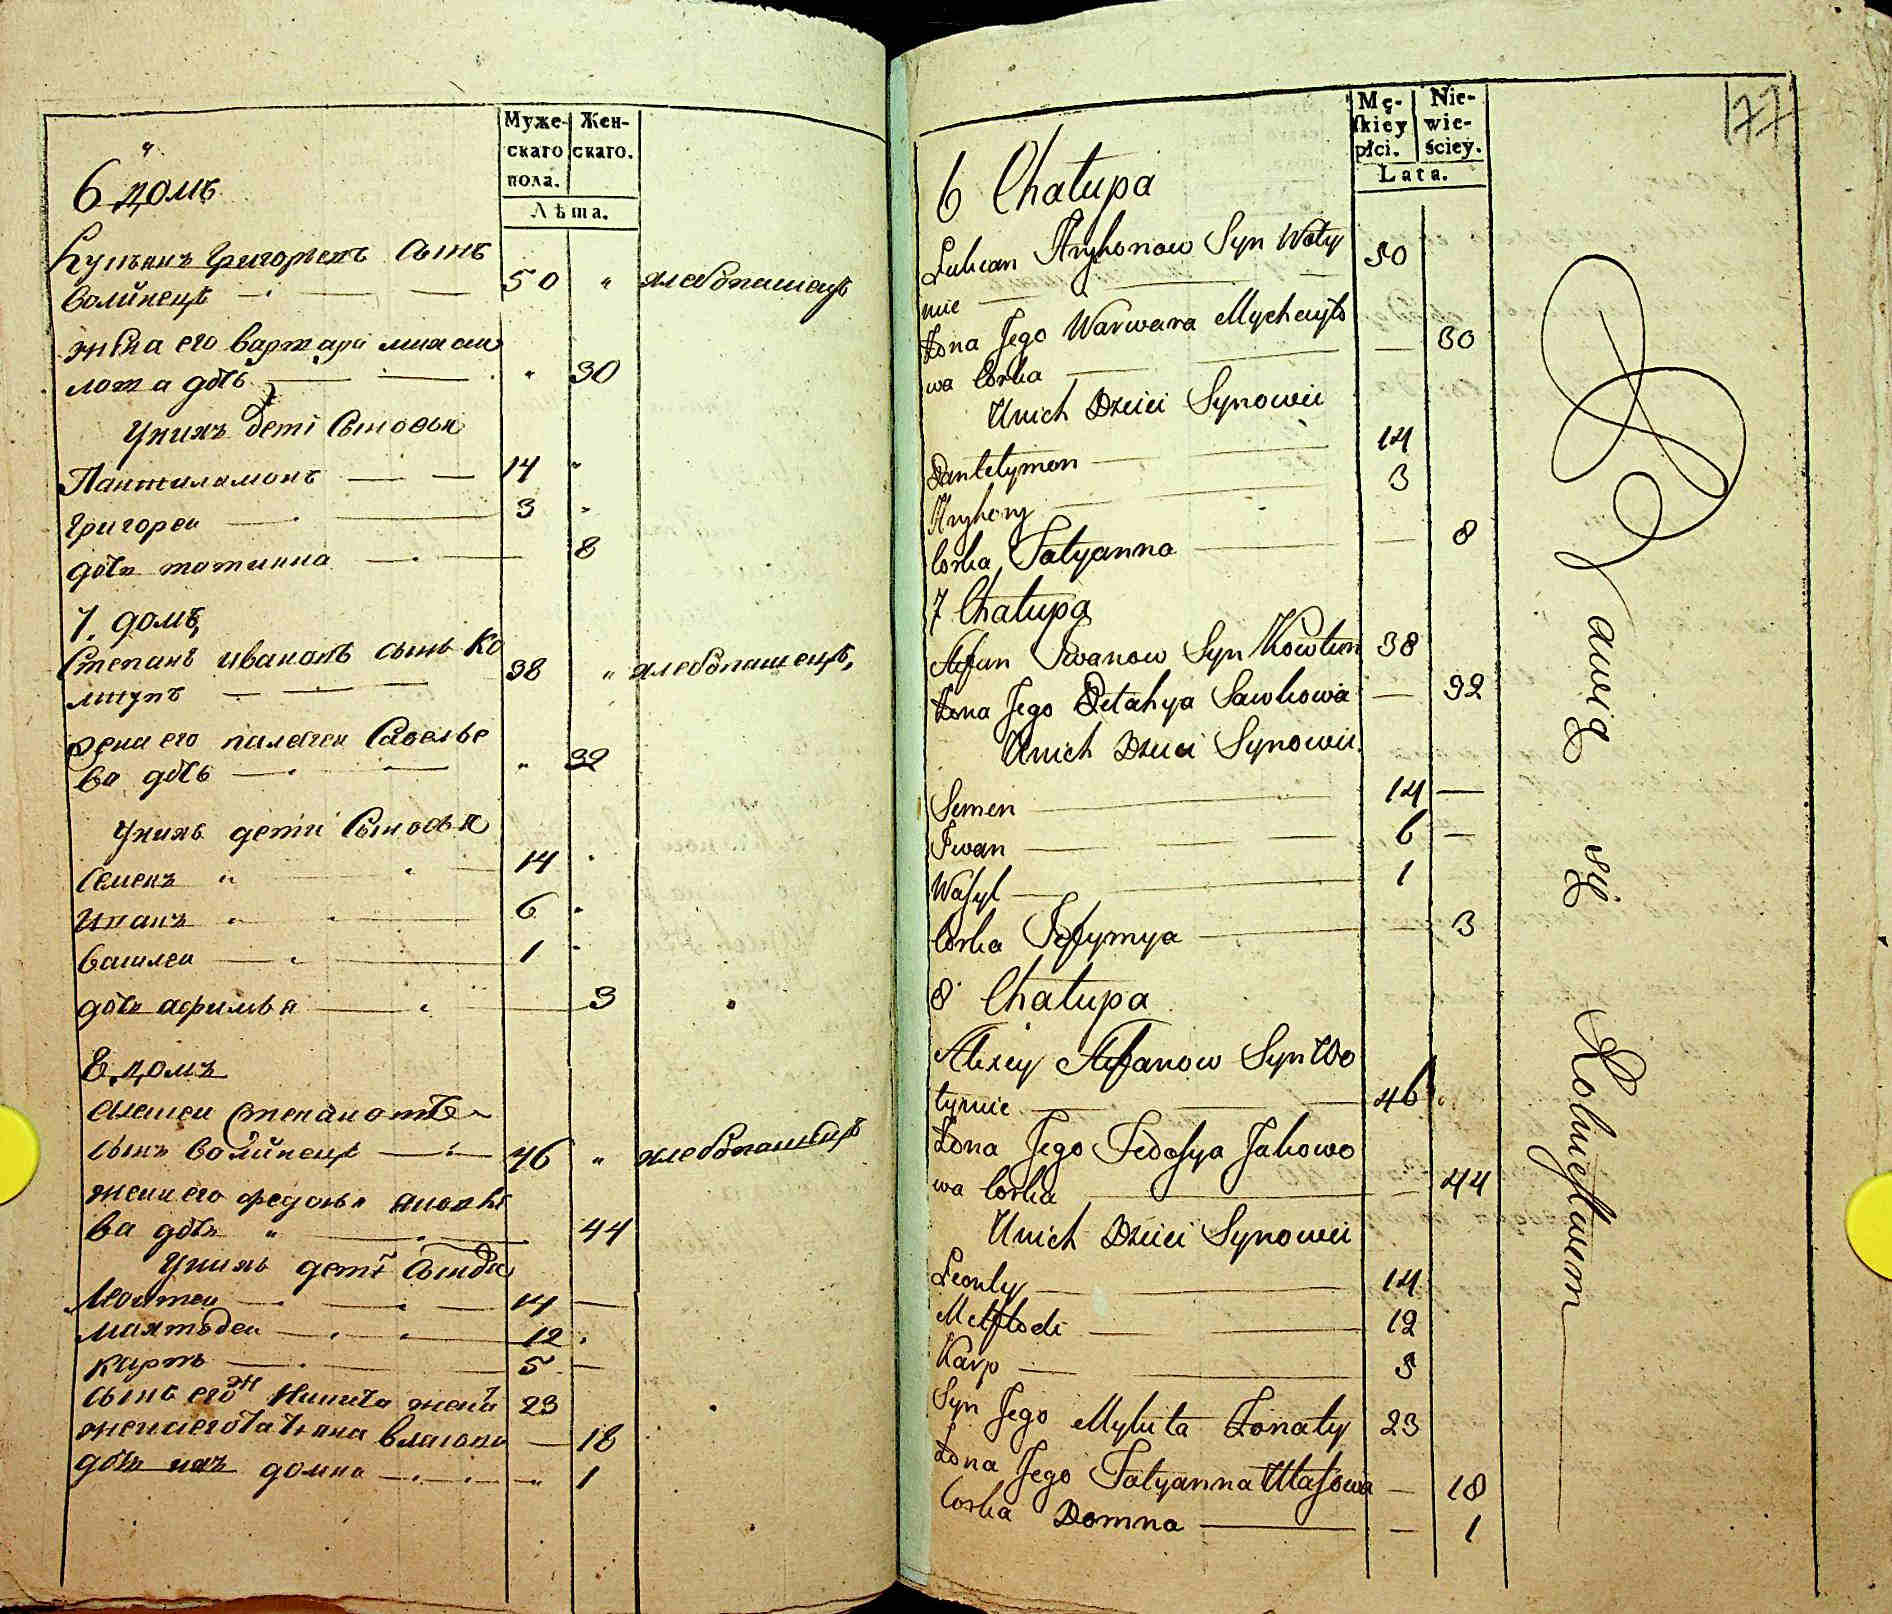 Муже-
скаго
пола.
Жен-
скаго.
Лѣта.
6 домъ
Лукьянъ Григорьевъ сынъ
Волинецъ 50 " хлебопашецъ
жена его варвара михаи
лова дочь " 30
Унихъ дети Сыновья
Пантиламонъ 14 "
Григореи 3 "
дочь татианна 8
7. домъ
Степанъ ивановъ сынъ Ко
38 " хлебопашецъ
жена его палагея Савелье
ва дочь " 32
Унихъ дети Сыновья
Семенъ " 14 "
Иванъ " 6 "
Василеи 1 "
дочь афимья 3
8. домъ
алексеи Степановъ
сынъ Волинецъ 46 " хлебопашецъ
жена его федосья яковле
ва дочь " 44
Унихъ дети Сынове
Леонтеи 14
мехтодеи 12
карпъ 5
сынъ его Никита женатъ 23
жена его татьяна власова 18
дочь ихъ домна " 1
177
Mę-
ſkiey
płci.
Nie-
wie-
ściey.
Lata.
6 Chałupa
Lukian Hryhorow Syn Woły
nie 50
Żona Jego Warwara Mychayło
wa Corka 30
Unich Dzieci Synowie
Pantelymon 14
Hryhory 3
Corka Tatyanna 8
7 Chałupa
Stefan Iwanow Syn Kowtun 38
Żona Jego Pelahya Sawkowa 32
Unich Dzieci Synowie
Semen 14
Iwan 6
Waſyl 1
Corka Jefymya 3
8 Chałupa
Alexey Stefanow Syn Wo
łynie 46
Żona Jego Fedoſya Jakowo
wa Corka 44
Unich Dzieci Synowie
Leonty 14
Meftodi 12
Karp 5
Syn Jego Mykita Żonaty 23
Żona Jego Tatyanna Ułaſowa 18
Corka Domna 1
Bawią się Rolnictwem